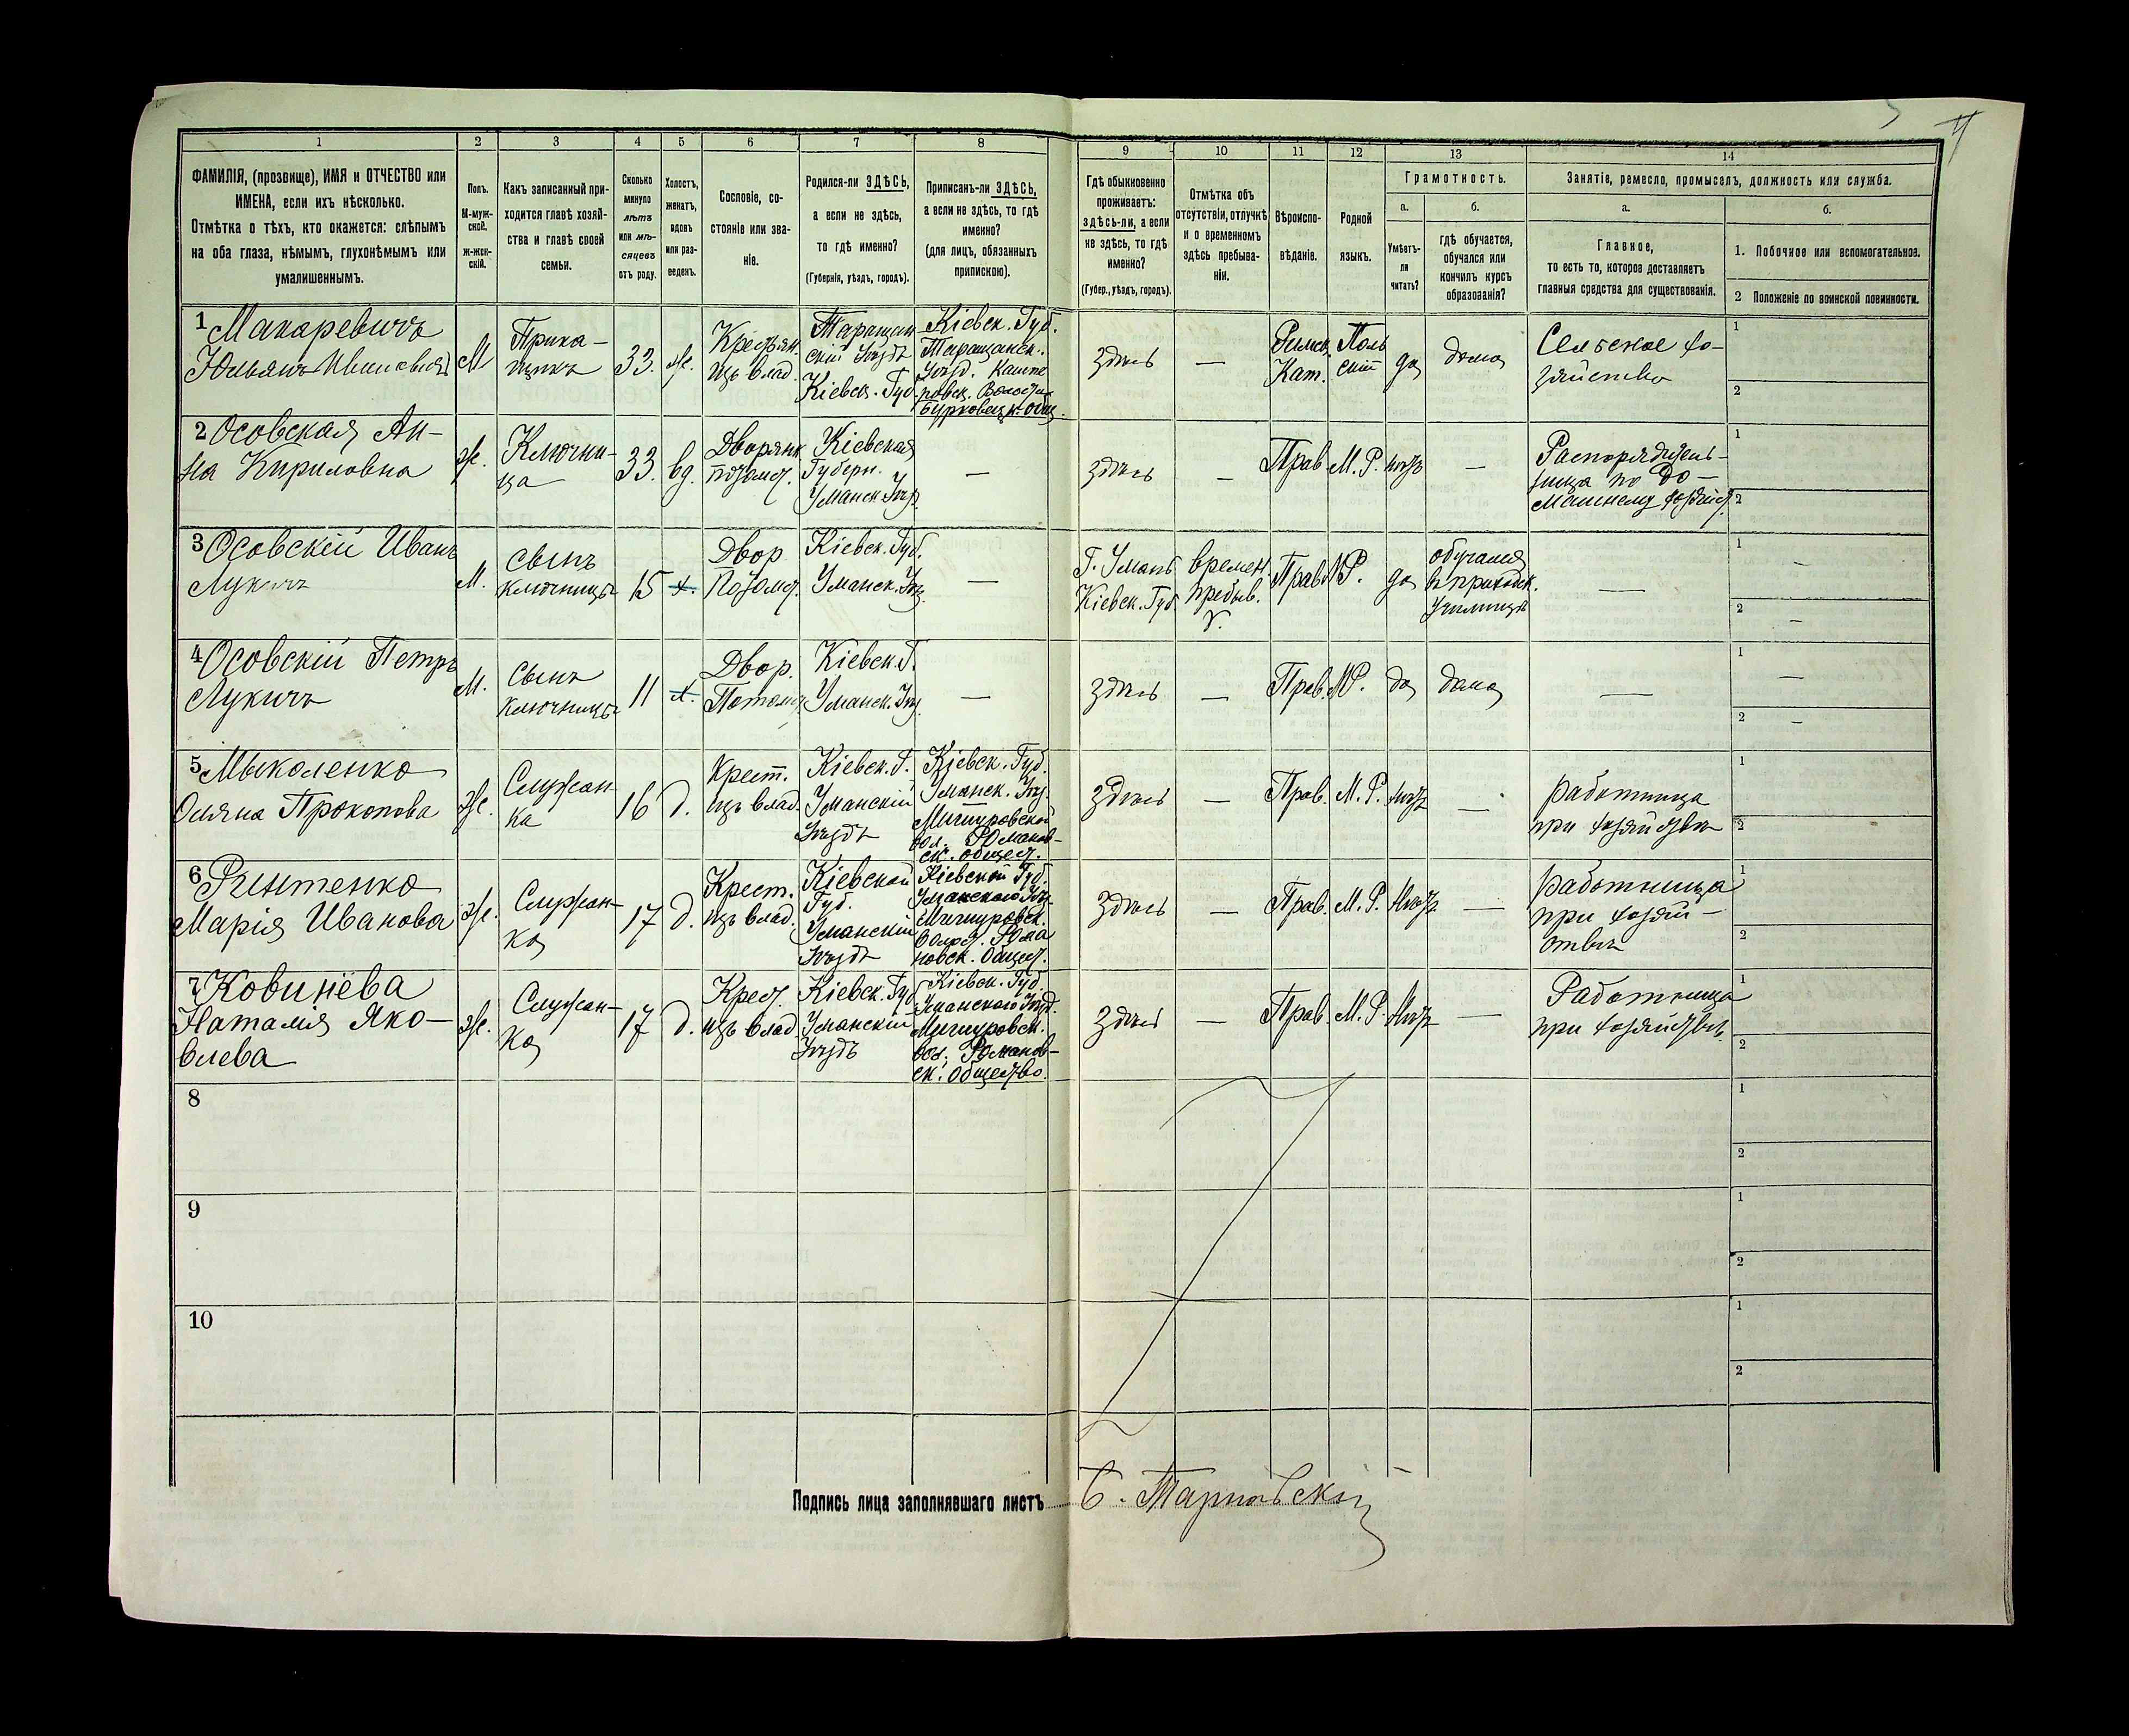 1
2
3
4
5
6
7
8
9
10
11
12
13
14
ФАМИЛІЯ, (прозвище), ИМЯ и ОТЧЕСТВО или
ИМЕНА, если ихъ нѣсколько.
Отмѣтка о тѣхъ, кто окажется: слѣпымъ
на оба глаза, нѣмымъ, глухонѣмымъ или
умалишеннымъ.
Полъ.
М-муж-
ской.
ж-жен-
скій.
Какъ записанный при-
ходится главѣ хозяй-
ства и главѣ своей
семьи.
Сколько
минуло
лѣтъ
или мѣ-
сяцевъ
отъ роду.
Холостъ,
женатъ,
вдовъ
или раз-
веденъ.
Сословіе, со-
стояніе или зва-
ніе.
Родился-ли ЗДѢСЬ,
а если не здѣсь,
то гдѣ именно?
(Губернія, уѣздъ, городъ).
Приписанъ-ли ЗДѢСЬ,
а если не здѣсь, то гдѣ
именно?
(для лицъ, обязанныхъ
припискою).
Гдѣ обыкновенно
проживаетъ:
здѣсь-ли, а если
не здѣсь, то гдѣ
именно?
(Губер., уѣздъ, городъ).
Отмѣтка объ
отсутствіи, отлучкѣ
и о временномъ
здѣсь пребыва-
ніи.
Вѣроиспо-
вѣданіе.
Родной
языкъ.
Грамотность.
а.
Умѣетъ-
ли
читать?
б.
гдѣ обучается,
обучался или
кончилъ курсъ
образованія?
Занятіе, ремесло, промыселъ, должность или служба.
а.
Главное,
то есть то, которое доставляетъ
главныя средства для существованія.
б.
1. Побочное или вспомогательное.
2 Положеніе по воинской повинности.
1 Макаревичъ
Юльянъ Ивановичъ
М
Прика-
щикъ
33.
ж.
Крестьян.
изъ влад.
Таращан-
скій Уѣздъ
Кіевск. Губ.
Кіевск. Губ.
Таращанск.
Уѣзд.
здѣсь
—
Римск.
Кат.
Поль
скій
да
дома
Сельское хо-
зяйство
1
2
2 Осовская Ан-
на Кириловна
ж.
Ключни-
ца
33.
вд.
Дворянк.
потомст.
Кіевская
Губерн.
Уманск. Уѣз.
—
здѣсь
—
Прав.
М. Р.
нѣтъ
—
Распорядитель-
ница по До-
машнему хозяйст.
1
2
3 Осовскій Иванъ
Лукичъ
М.
сынъ
ключницы
15
х.
Двор.
Потомст.
Кіевск. Губ.
Уманск. Уѣз.
—
Г. Умань
Кіевск. Губ.
времен.
пребыв.
Прав.
М.Р.
да
обучался
въ приходск.
училищѣ
—
1
—
2
—
4 Осовскій Петръ
Лукичъ
М.
Сынъ
ключницы
11
х.
Двор.
Потомст.
Кіевск. Г.
Уманск. Уѣз.
—
здѣсь
—
Прав.
М.Р.
да
дома
—
1
—
2
—
5 Мыколенко
Оляна Прокопова
ж.
Служан-
ка
16
д.
Крест.
изъ влад.
Кіевск. Г.
Уманскій
Уѣздъ
Кіевск. Губ.
Уманск. Уѣз.
вол. Романов-
ск. общест.
здѣсь
—
Прав.
М. Р.
нѣтъ
—
работница
при хозяйствѣ
1
2
6
Марія Иванова
ж.
Служан-
ка
17
д.
Крест.
изъ влад.
Кіевской
Губ.
Уманскій
Уѣздъ
Кіевской Губ.
Уманскаго Уѣз.
Волост. Рома
новск. Общест.
здѣсь
—
Прав.
М. Р.
Нѣтъ
—
работница
при хозяй-
ствѣ
1
2
7 Ковинёва
Наталія Яко-
влева
ж.
Служан-
ка
17
д.
Крест.
изъ влад.
Кіевск. Губ.
Уманскій
Уѣздъ
Кіевск. Губ.
Уманскаго Уѣзд.
вол. Романов-
ск. Общество.
здѣсь
—
Прав.
М. Р.
Нѣтъ
—
Работница
при хозяйствѣ.
1
2
8
1
2
9
1
2
10
1
2
Подпись лица заполнявшаго листъ
Тарновскій